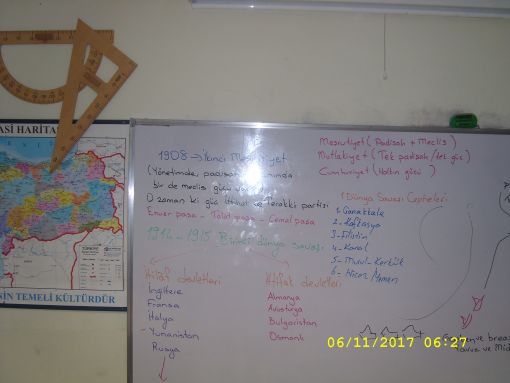 ASI HARİTA
NİN TEMELİ KÜLTÜRDÜR
1908 → İkinci Meşrutiyet
(Yönetimde, padişahın yanında
bir de meclis gücü
O zaman ki güç İttihat ve Terakki partisi
Enver paşa - Talat paşa - Cemal paşa
1914 - 1915 Birinci dünya savaşı
İtilaf devletleri
İngiltere
Fransa
İtalya
Yunanistan
Rusya
İttifak devletleri
Almanya
Avusturya
Bulgaristan
Osmanlı
Meşrutiyet (Padişah + Meclis)
Mutlakiyet (Tek padişah/tek güç)
Cumhuriyet (Halkın gücü)
1.Dünya Savaşı Cepheleri
1- Çanakkale
2- Kafkasya
3- Filistin
4- Kanal
5- Musul-Kerkük
6- Hicaz/Yemen
ve bres
Yavuz ve Mid
06/11/2017 06:27